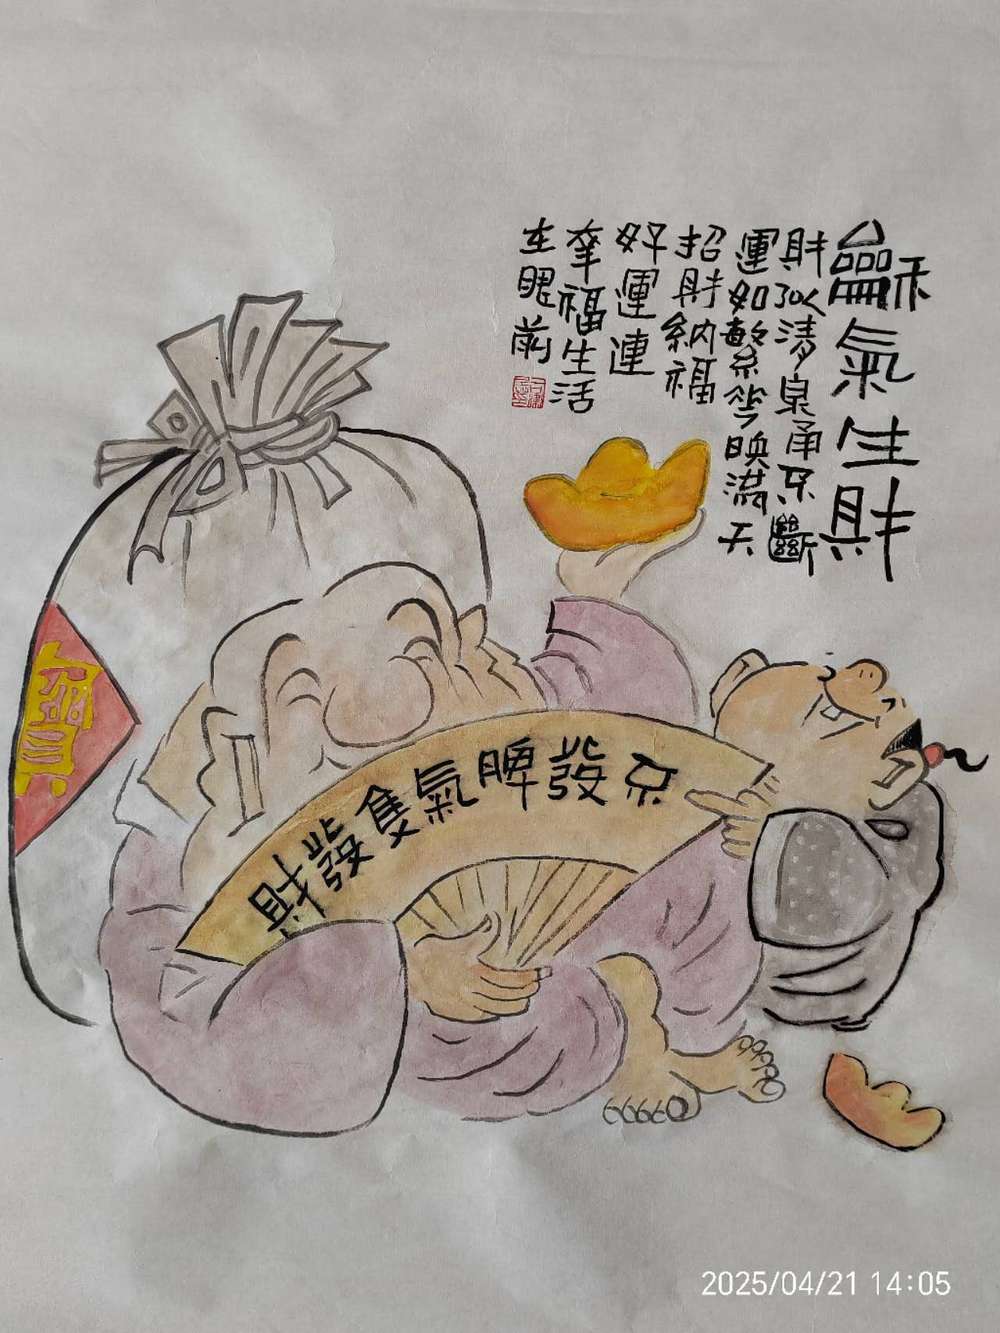 龢氣生財
財似清泉甬不斷
運如繁花映滿天
招財納福
好運連
幸福生活
在眼前
不發脾氣隻發財
寶
2025/04/21 14:05